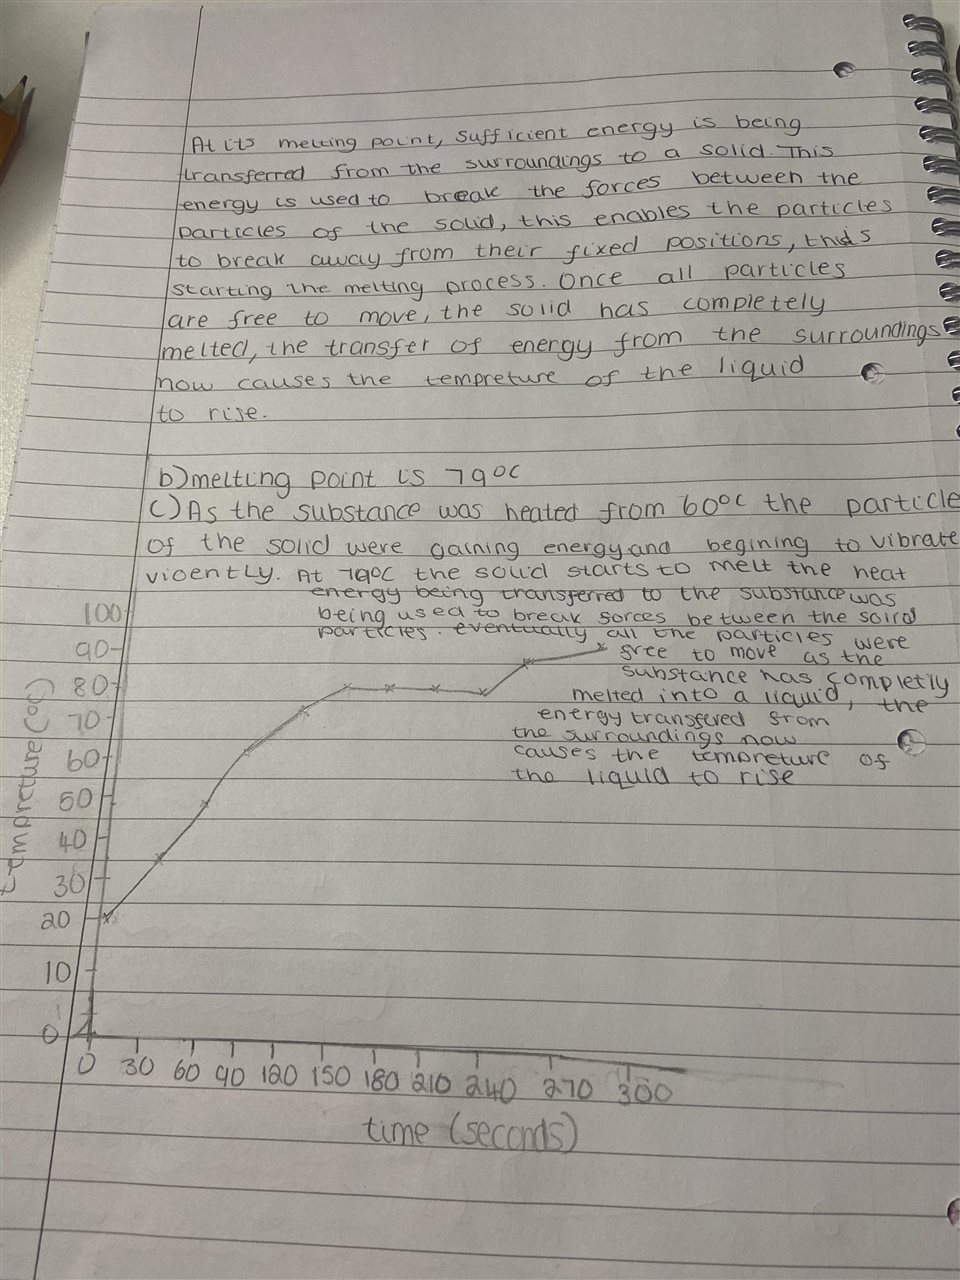 At its melting point, sufficient energy is being
transferred from the surroundings to a solid. This
energy is used to break the forces between the
particles of the solid, this enables the particles
to break away from their fixed positions, thus
starting the melting process. Once all particles
are free to move, the solid has completely
melted, the transfer of energy from the surroundings
now causes the tempreture of the liquid
to rise.
b) melting point is 79°C
c) As the substance was heated from 60°C the particle
of the solid were gaining energy and begining to vibrate
vioently. At 79°C the solid starts to melt the heat
energy being transferred to the substance was
being used to break forces between the solid
particles. eventually all the particles were
free to move as the
substance has completly
melted into a liquid, the
energy transfered from
the surroundings now
causes the tempreture of
the liquid to rise
tempreture (°C)
100
90
80
70
60
50
40
30
20
10
0
0 30 60 90 120 150 180 210 240 270 300
time (seconds)